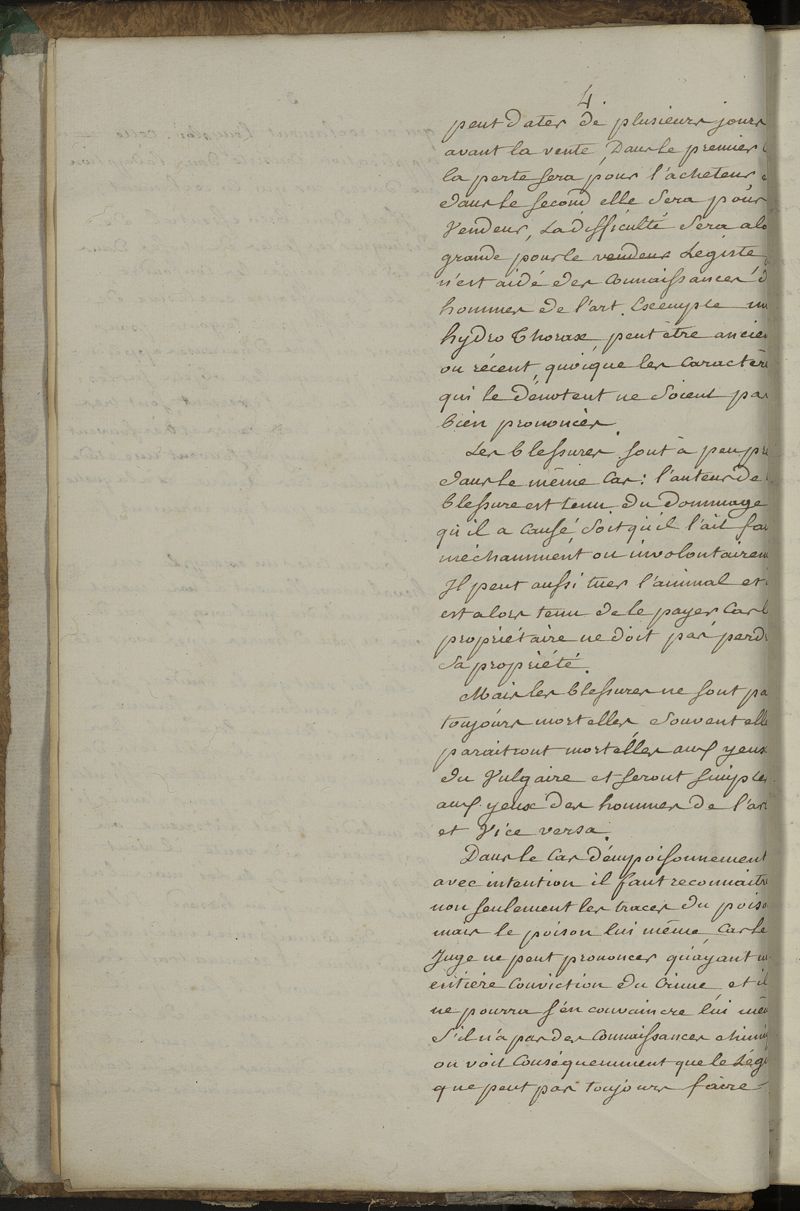 4.
peut dater de plusieurs jours
avant la vente, Dans le premier
la perte sera pour l'acheteur
dans le second elle sera pour
Vendeur, La difficulté sera alo
grande pour le vendeur Legiste
n'est aidé des Connaissances d
hommes de l'art. Exemple un
hydro Thorax, peut être ancie
ou récent, quoique les Caractèr
qui le dénotent ne soient pas
bien prononcés.
Les blessures sont à peu pr
dans le même Cas: l'auteur de
blessure est tenu du Dommage
qu'il a Causé, soit qu'il l'ait fa
méchamment ou involontairem
Il peut aussi tuer l'animal et
est alors tenu de le payer Car l
propriétaire ne doit pas perd
sa propriété.
Mais les blessures ne sont pa
toujours mortelles souvent elle
paraitront mortelles aux yeux
du Vulgaire et seront simples
aux yeux des hommes de l'art
et Vice versa.
Dans le Cas d'empoisonnement
avec intention il faut reconnaitre
non seulement les traces du poiso
mais le poison lui même, Car le
Juge ne peut prononcer qu'ayant
entière Conviction du Crime et il
ne pourra s'en convaincre lui mêm
s'il n'a pas des Connaissances chimiq
on voit Conséquemment que le Légi
que peut pas toujours faire